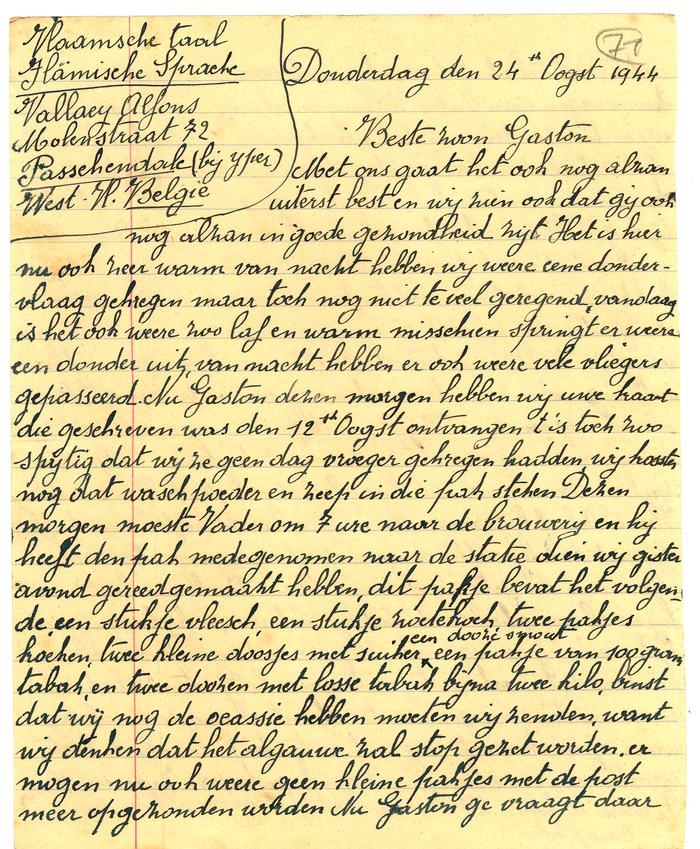 71
Vlaamsche taal
Flämische Sprache
Vallaey Alfons
Molenstraat 72
Passchendale (bij yper)
West-Vl. België
Donderdag den 24th Oogst 1944
Beste zoon Gaston
Met ons gaat het ook nog alzan
uiterst best en wij zien ook dat gij ook
nog alzan in goede gezondheid zijt. Het is hier
nu ook zeer warm van nacht hebben wij weere eene donder-
vlaag gekregen maar toch nog niet te veel geregend, vandaag
is het ook weere zoo laf en warm misschien springt er weere
een donder uit, van nacht hebben er ook weere vele vliegers
gepasseerd. Nu Gaston dezen morgen hebben wij uwe kaart
die geschreven was den 12th Oogst ontvangen t'is toch zoo
spijtig dat wij ze geen dag vroeger gekregen hadden, wij kosten
nog dat waschpoeder en zeep in die pak steken Dezen
morgen moeste Vader om 7 ure naar de brouwerij en hij
heeft den pak medegenomen naar de statie dien wij gister
avond gereedgemaakt hebben, dit pakje bevat het volgen-
de, een stukje vleesch, een stukje zoetekoek, twee pakjes
koeken, twee kleine doosjes met suiker, een dooze sprout een pakje van 100 gram
tabak, en twee doozen met losse tabak bijna twee kilo, binst
dat wij nog de ocassie hebben moeten wij zenden, want
wij denken dat het algauwe zal stop gezet worden. er
mogen nu ook weere geen kleine pakjes met de post
meer opgezonden worden Nu Gaston ge vraagt daar